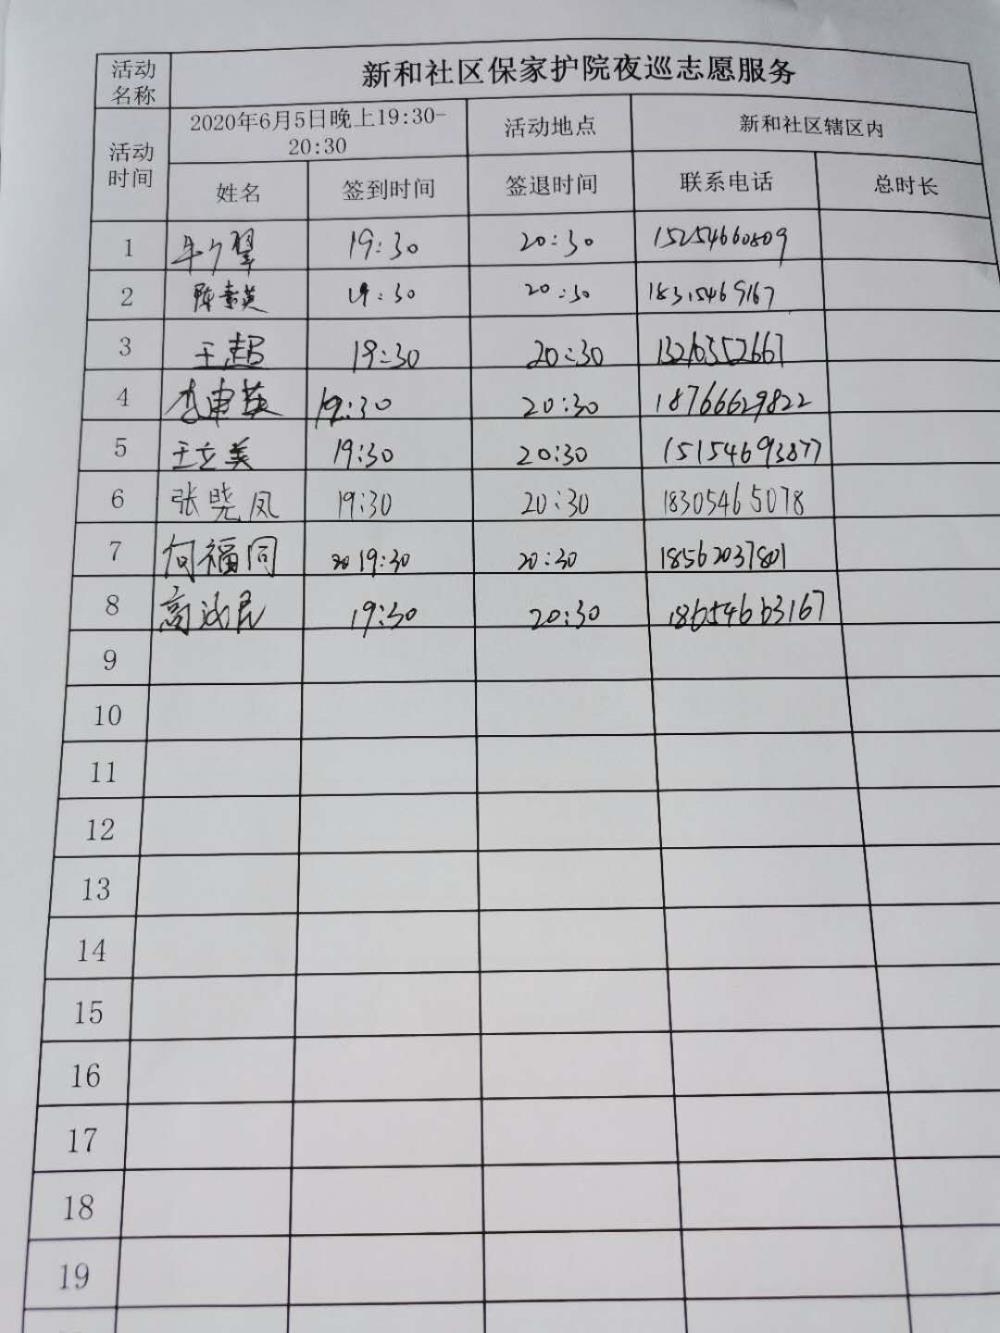 活动名称 新和社区保家护院夜巡志愿服务
活动时间 2020年6月5日晚上19:30-20:30 活动地点 新和社区辖区内
姓名 签到时间 签退时间 联系电话 总时长
1 19:30 20:30 15254660809
2 陈素英 19:30 20:30 18315469167
3 王超 19:30 20:30 13210352667
4 李建英 19:30 20:30 18766629822
5 王立美 19:30 20:30 15154693877
6 张晓凤 19:30 20:30 18305465078
7 何福同 19:30 20:30 18562037801
8 高 民 19:30 20:30 18654663167
9
10
11
12
13
14
15
16
17
18
19